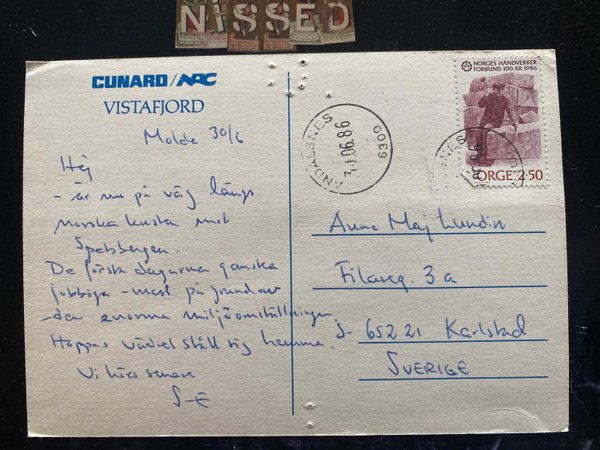 NiSSED
CUNARD/NAC
VISTAFJORD
Molde 30/6
Hej
- är nu på väg längs
norska kusten mot
Spetsbergen.
De första dagarna ganska
jobbiga - mest på grund av
- den enorma miljöomställningen
Hoppas vädret ställt sig hemma.
Vi hörs senare
S-E
ÅNDALSNES
30.06.86
6300
NORGES HÅNDVERKER
FORBUND 100 ÅR 1986
NORGE 2.50
Anna Maj Lundin
Filareg. 3 a
S- 652 21 Karlstad
SVERIGE